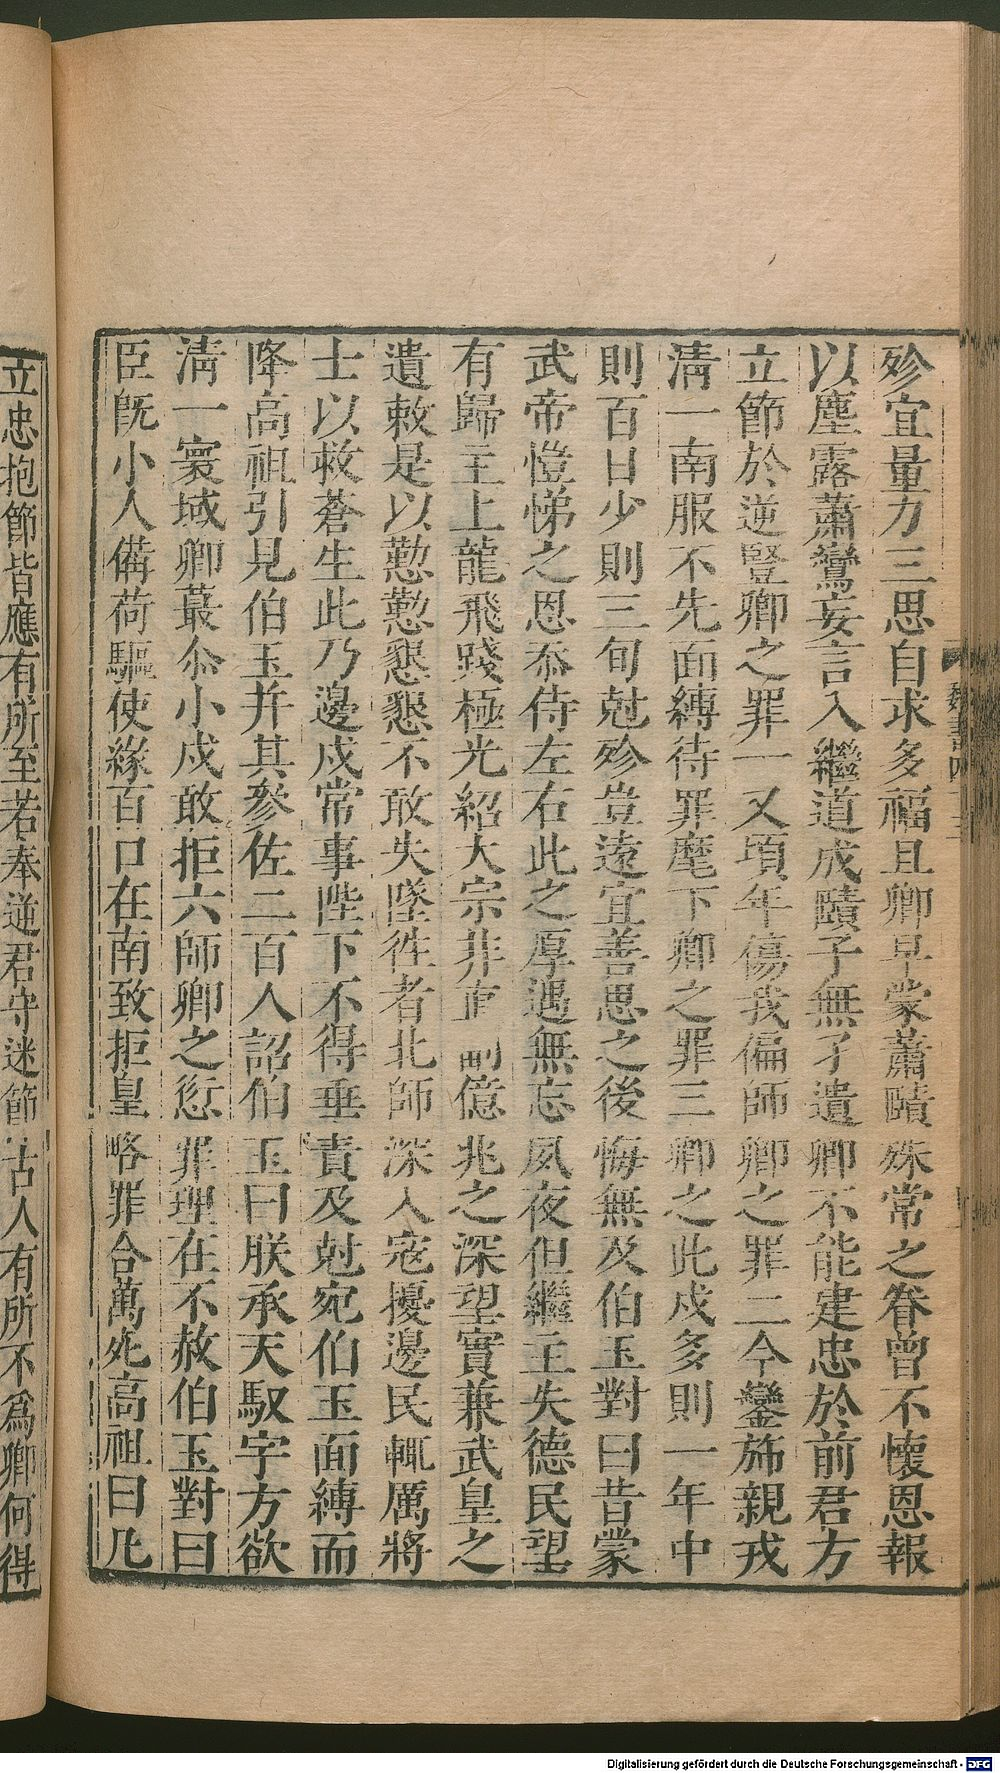 殄宜量力三思自求多福且卿早蒙蕭賾殊常之眷曾不懷恩報
以塵露蕭鸞妄言入繼道成賾子無孑遺卿不能建忠於前君方
立節於逆豎卿之罪一又頃年傷我偏師卿之罪二今鑾斾親戎
清一南服不先面縛待罪麾下卿之罪三卿之此戍多則一年中
則百日少則三旬尅殄豈遠宜善思之後悔無及伯玉對曰昔蒙
武帝愷悌之恩忝侍左右此之厚遇無忘夙夜但繼主失德民望
有歸主上龍飛踐極光紹大宗非直副億兆之深望實兼武皇之
遺敕是以懃懃懇懇不敢失墜徃者北師深入寇擾邊民輒厲將
士以救蒼生此乃邊戍常事陛下不得垂責及尅宛伯玉面縛而
降高祖引見伯玉并其參佐二百人詔伯玉曰朕承天馭宇方欲
清一寰域卿蕞尒小戍敢拒六師卿之愆罪理在不赦伯玉對曰
臣旣小人備荷驅使緣百口在南致拒皇略罪合萬死高祖曰凡
立忠抱節皆應有所至若奉逆君守迷節古人有所不爲卿何得
魏書四十三
Digitalisierung gefördert durch die Deutsche Forschungsgemeinschaft - DFG